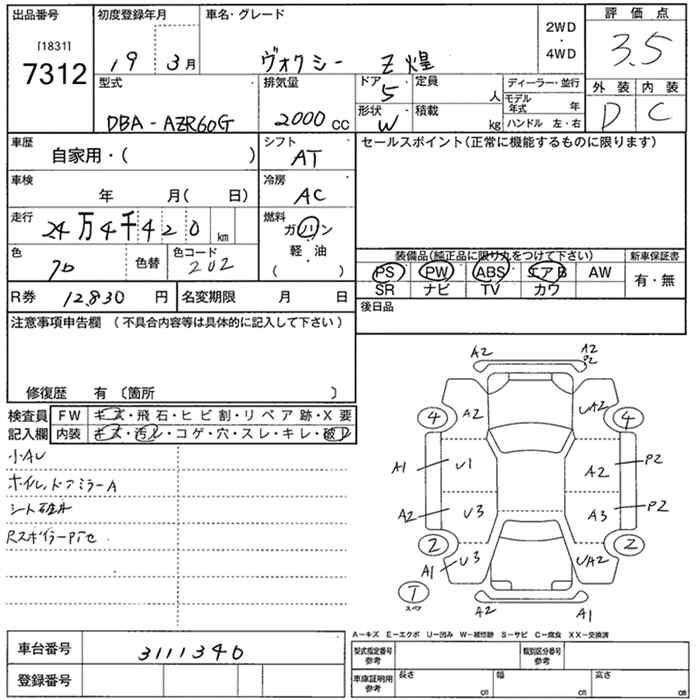 出品番号
[1831]
7312
初度登録年月
19 3月
車名・グレード
ヴォクシー Z煌
2WD
・
4WD
評価点
3.5
型式
DBA-AZR60G
排気量
2000 CC
ドア
5
形状
W
定員
人
積載
kg
ディーラー・並行
モデル年式 年
ハンドル 左・右
外装 内装
D C
車歴
自家用・( )
シフト
AT
車検
年 月( 日)
冷房
AC
走行
24万4千420 km
燃料
ガソリン
軽・油
( ・ )
色
色替
色コード
202
R券 12,830 円
名変期限 月 日
セールスポイント(正常に機能するものに限ります)
装備品(純正品に限り丸をつけて下さい)
PS PW ABS エアB AW
SR ナビ TV カワ
新車保証書
有・無
後日品
注意事項申告欄 (不具合内容等は具体的に記入して下さい)
修復歴 有 〔箇所 〕
検査員記入欄
FW キズ・飛石・ヒビ割・リペア跡・X要
内装 キズ・汚レ・コゲ・穴・スレ・キレ・破レ
小AU
ホイル,ドアミラーA
A2 A2 P2
A2 UA2
4 4
A1 U1 A2 P2
A2 U3 A3 P2
2 2
A1 U3 UA2
T
スペア
A2 A1
A-キズ E-エクボ U-凹み W-補修跡 S-サビ C-腐食 XX-交換済
車台番号 3111340
登録番号
型式指定番号 参考
類別区分番号 参考
車庫証明用 参考
長さ cm 幅 cm 高さ cm